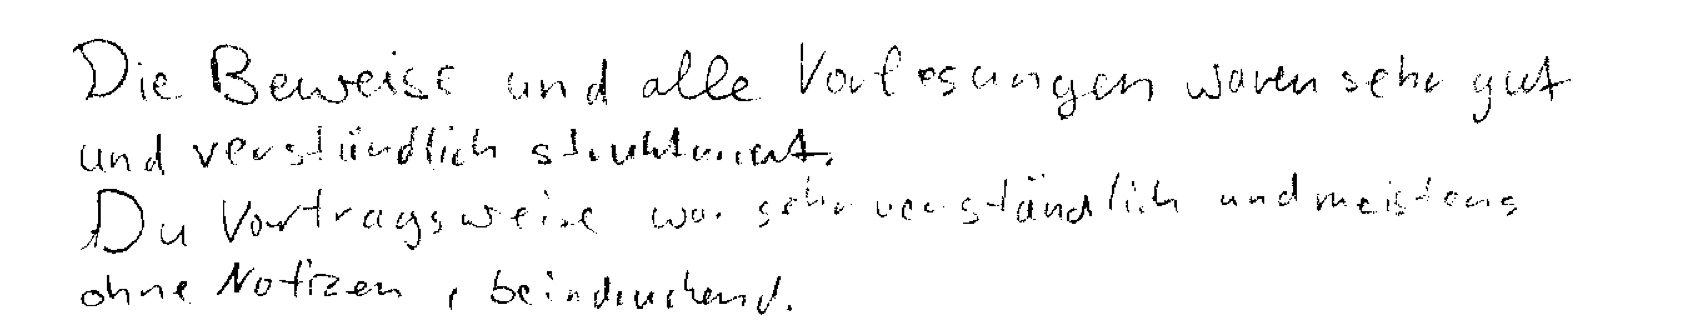 Die Beweise und alle Vorlesungen waren sehr gut
und verständlich strukturiert.
Die Vortragsweise war sehr verständlich und meistens
ohne Notizen, beindruckend.